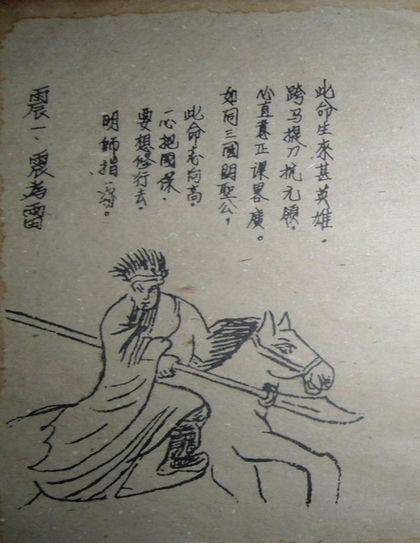 此命生來甚英雄。
跨马提刀抗元領。
心直意正谋畧廣。
如同三國関聖公，
此命志向高。
一心把國保。
要想修行去。
明師指
震一、震為雷